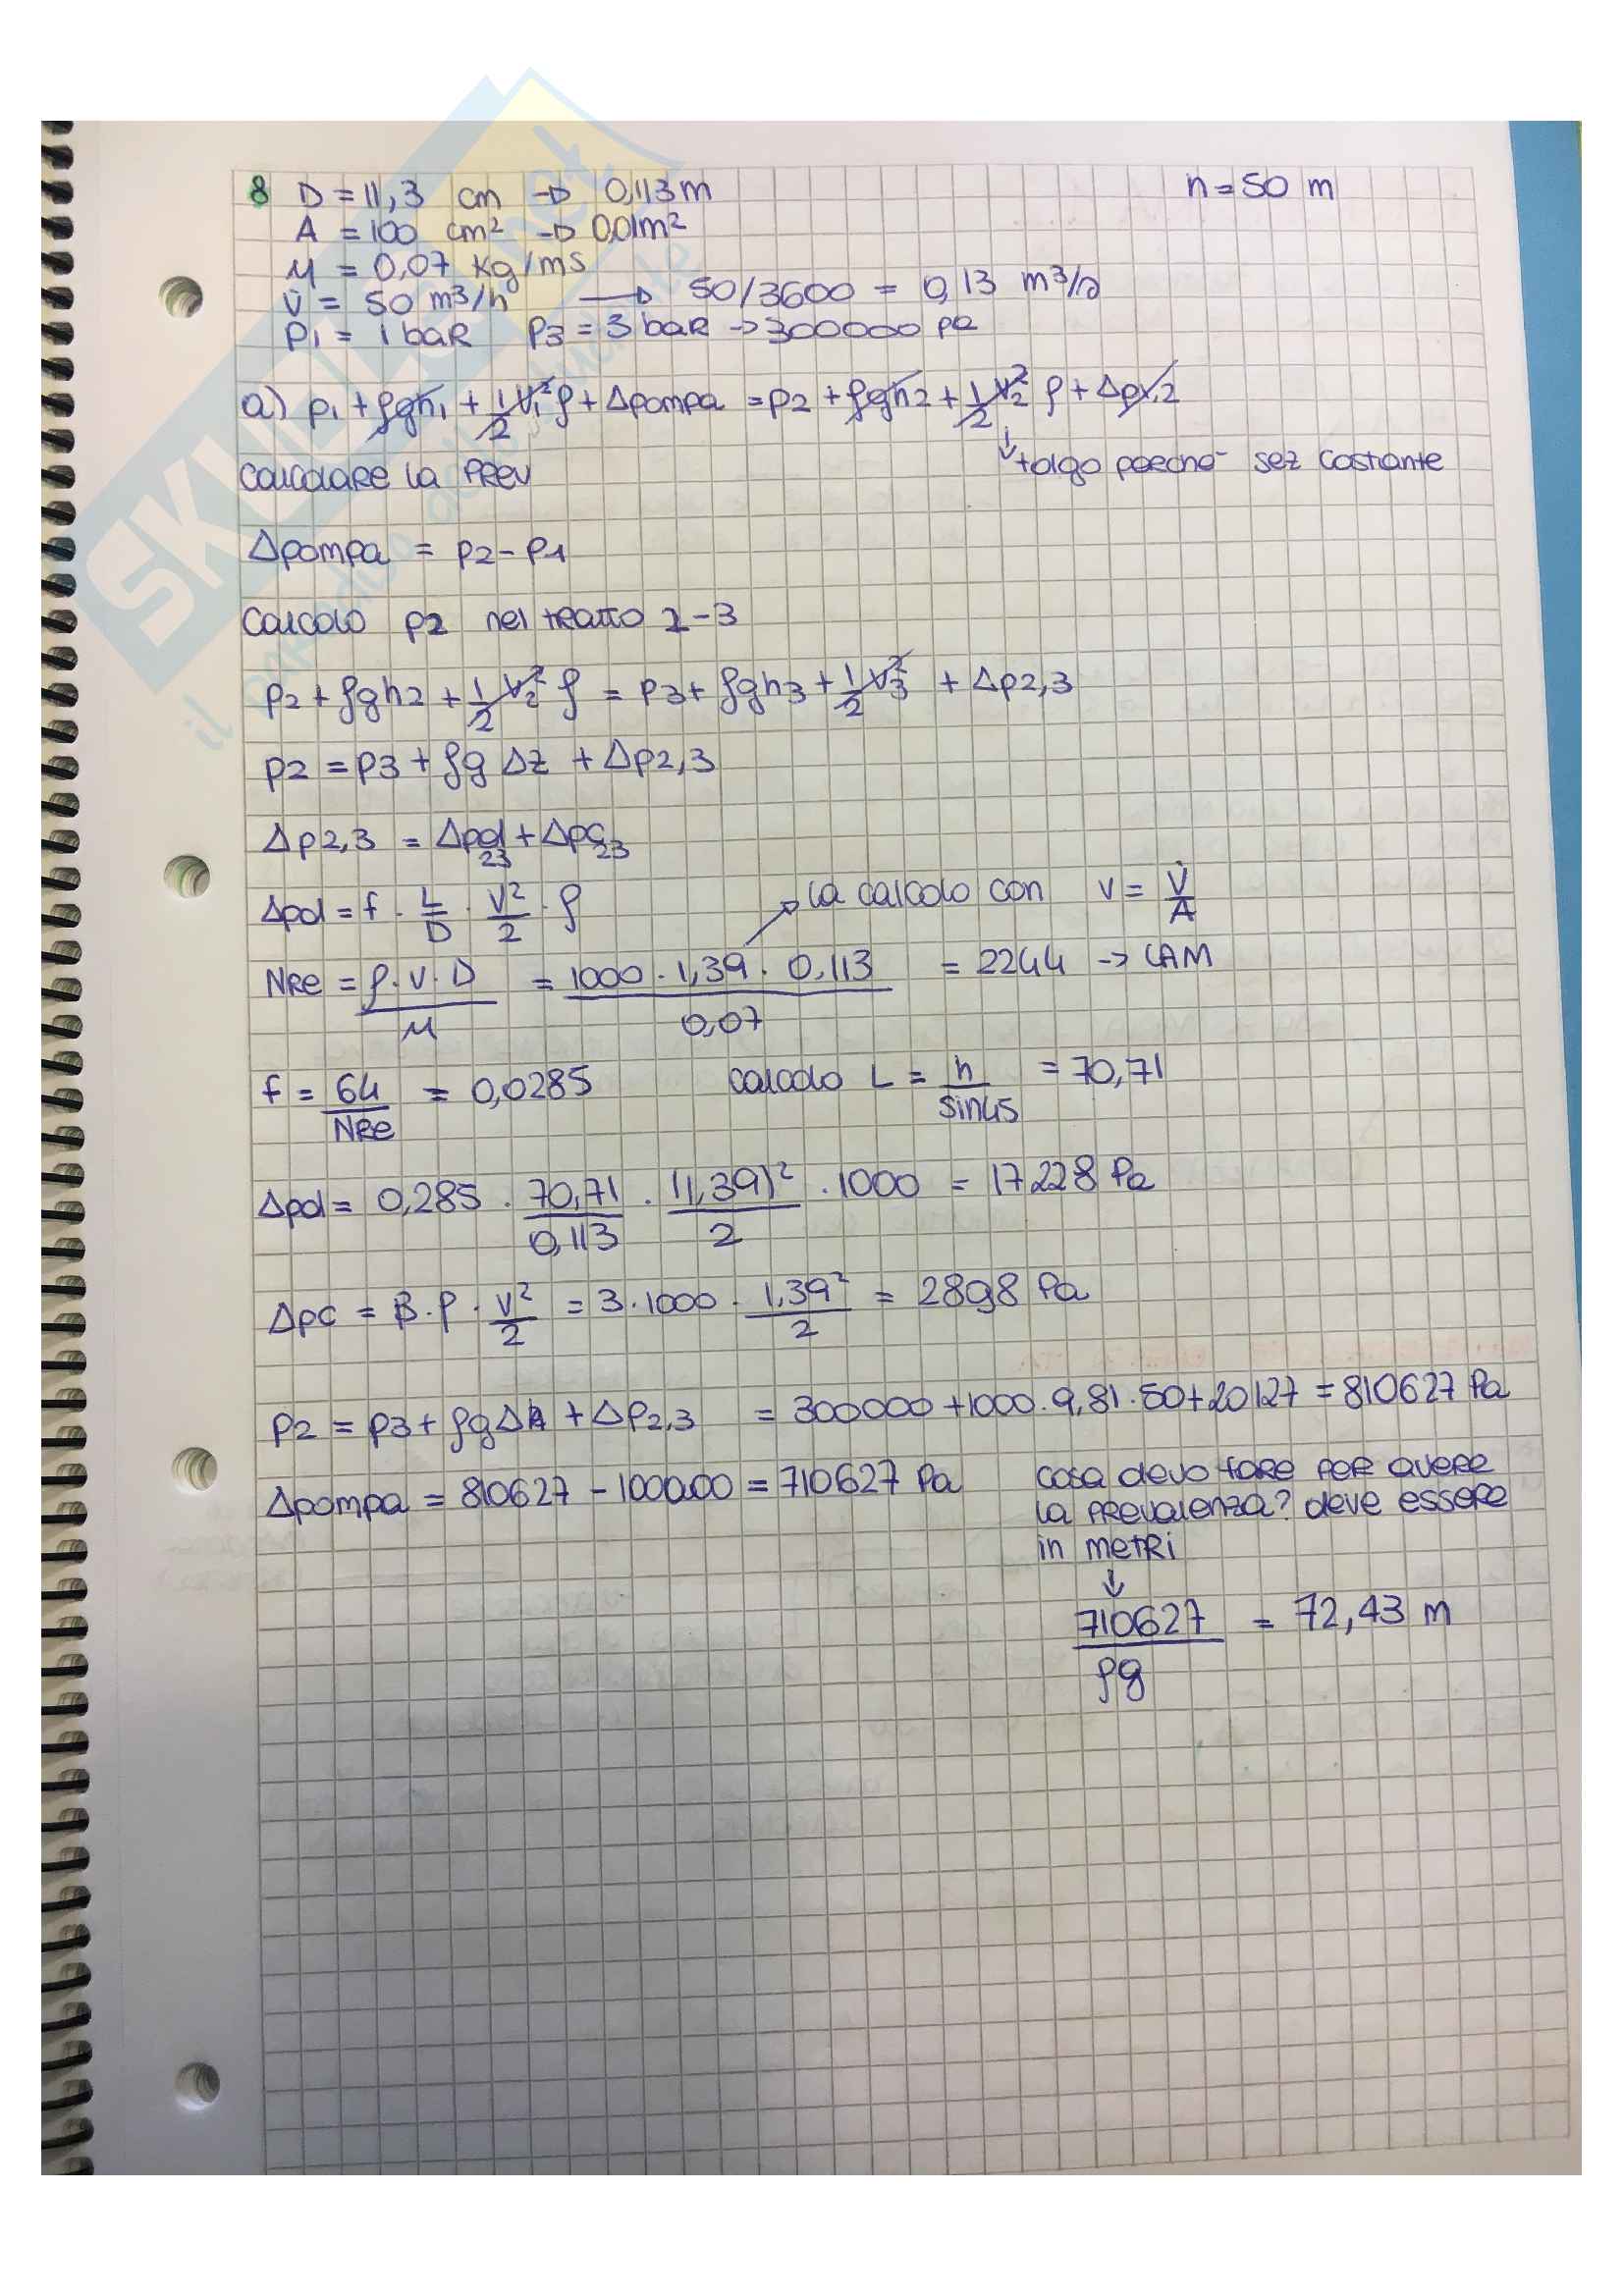 8 D = 11,3 cm → 0,113 m h = 50 m
A = 100 cm² → 0,01 m²
μ = 0,07 kg/ms
V̇ = 50 m³/h → 50/3600 = 0,13 m³/s
P1 = 1 baR P3 = 3 baR → 300000 pa
a) p1 + ρgh1 + 1/2 v1² ρ + Δpompa = p2 + ρgh2 + 1/2 v2² ρ + Δp1,2
↓ tolgo perché sez costante
Calcolare la PREV
Δpompa = p2 - p1
Calcolo p2 nel tratto 2-3
p2 + ρgh2 + 1/2 v2² ρ = p3 + ρgh3 + 1/2 v3² + Δp2,3
p2 = p3 + ρg Δz + Δp2,3
Δp2,3 = Δpd23 + Δpc23
Δpd = f · L/D · v²/2 · ρ → la calcolo con v = V̇/A
NRe = ρ·v·D/μ = 1000 · 1,39 · 0,113/0,07 = 2244 → LAM
f = 64/NRe = 0,0285 calcolo L = h/sin45 = 70,71
Δpd = 0,285 · 70,71/0,113 · (1,39)²/2 · 1000 = 17228 Pa
Δpc = β·ρ · v²/2 = 3·1000 · 1,39²/2 = 2898 Pa
p2 = p3 + ρgΔh + Δp2,3 = 300000 + 1000·9,81·50 + 20127 = 810627 Pa
Δpompa = 810627 - 100000 = 710627 Pa
cosa devo fare per avere
la prevalenza? deve essere
in metri
↓
710627/ρg = 72,43 m
SKUOLA.net